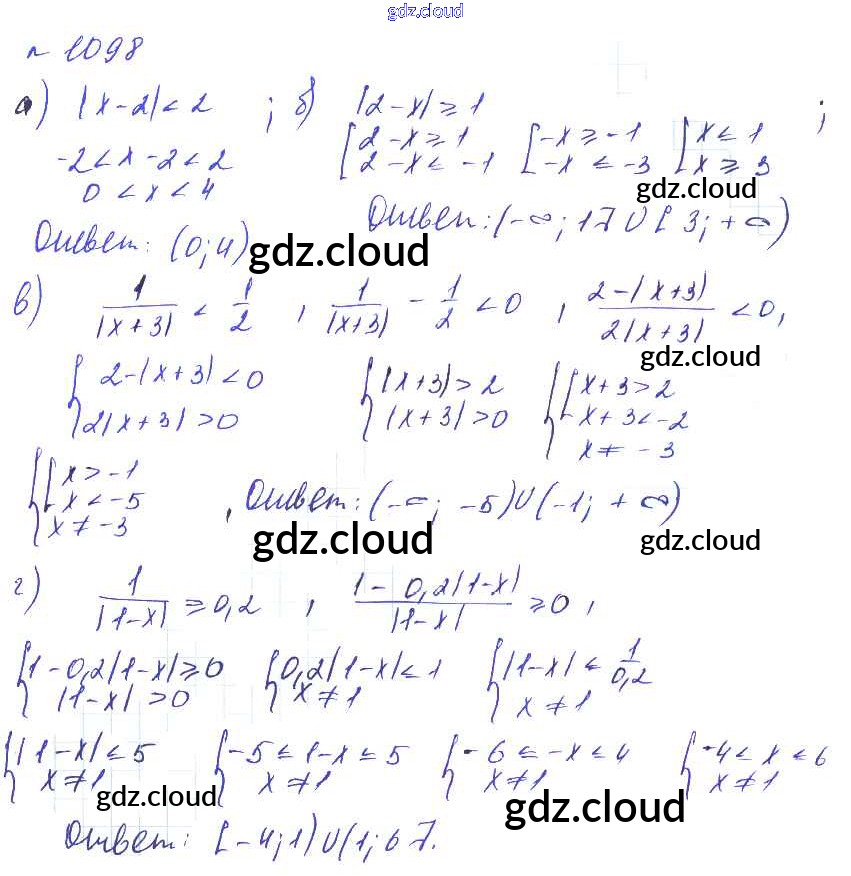 gdz.cloud
№ 1098
а) |x-2|<2 ; б) |2-x|≥1 ;
-2<x-2<2 [2-x≥1 [-x≥-1 [x≤1
0<x<4 2-x≤-1 -x≤-3 x≥3
gdz.cloud
Ответ: (0;4) Ответ: (-∞; 1] ∪ [3; +∞)
gdz.cloud
в) 1/|x+3| < 1/2 , 1/|x+3| - 1/2 <0 , 2-|x+3|/2|x+3| <0,
gdz.cloud
{2-|x+3|<0 {|x+3|>2 {[x+3>2
2|x+3|>0 |x+3|>0 x+3<-2
x≠-3
{[x>-1
x<-5
x≠-3 , Ответ: (-∞; -5)∪(-1; +∞)
gdz.cloud gdz.cloud
г) 1/|1-x| ≥0,2 , 1-0,2|1-x|/|1-x| ≥0 ,
{1-0,2|1-x|≥0 {0,2|1-x|≤1 {|1-x|≤ 1/0,2
|1-x|>0 x≠1 x≠1
{|1-x|≤5 {-5≤1-x≤5 {-6≤-x≤4 {-4≤x≤6
x≠1 x≠1 x≠1 x≠1
gdz.cloud gdz.cloud
Ответ: [-4;1)∪(1;6].